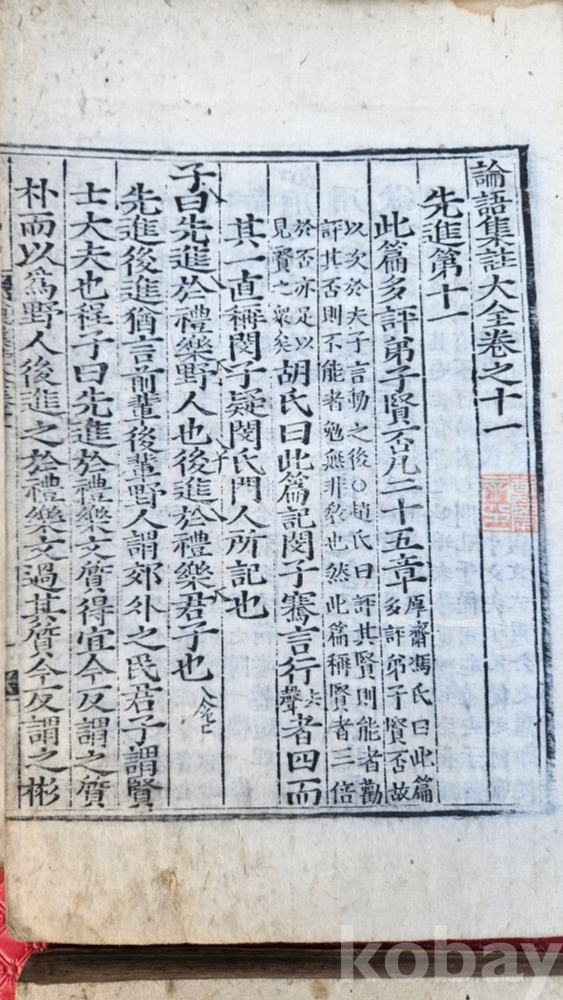 論語集註大全卷之十一
先進第十一
此篇多評弟子賢否凡二十五章厚齋馮氏曰此篇
多評弟子賢否故
以次於夫子言動之後○趙氏曰評其賢則能者勸
評其否則不能者勉無非敎也然此篇稱賢者三倍
於否亦足以
見賢之衆矣胡氏曰此篇記閔子騫言行去
聲者四而
其一直稱閔子疑閔氏門人所記也
子曰先進於禮樂野人也後進於禮樂君子也
先進後進猶言前輩後輩野人謂郊外之民君子謂賢
士大夫也程子曰先進於禮樂文質得宜今反謂之質
朴而以爲野人後進之於禮樂文過其質今反謂之彬
kobay